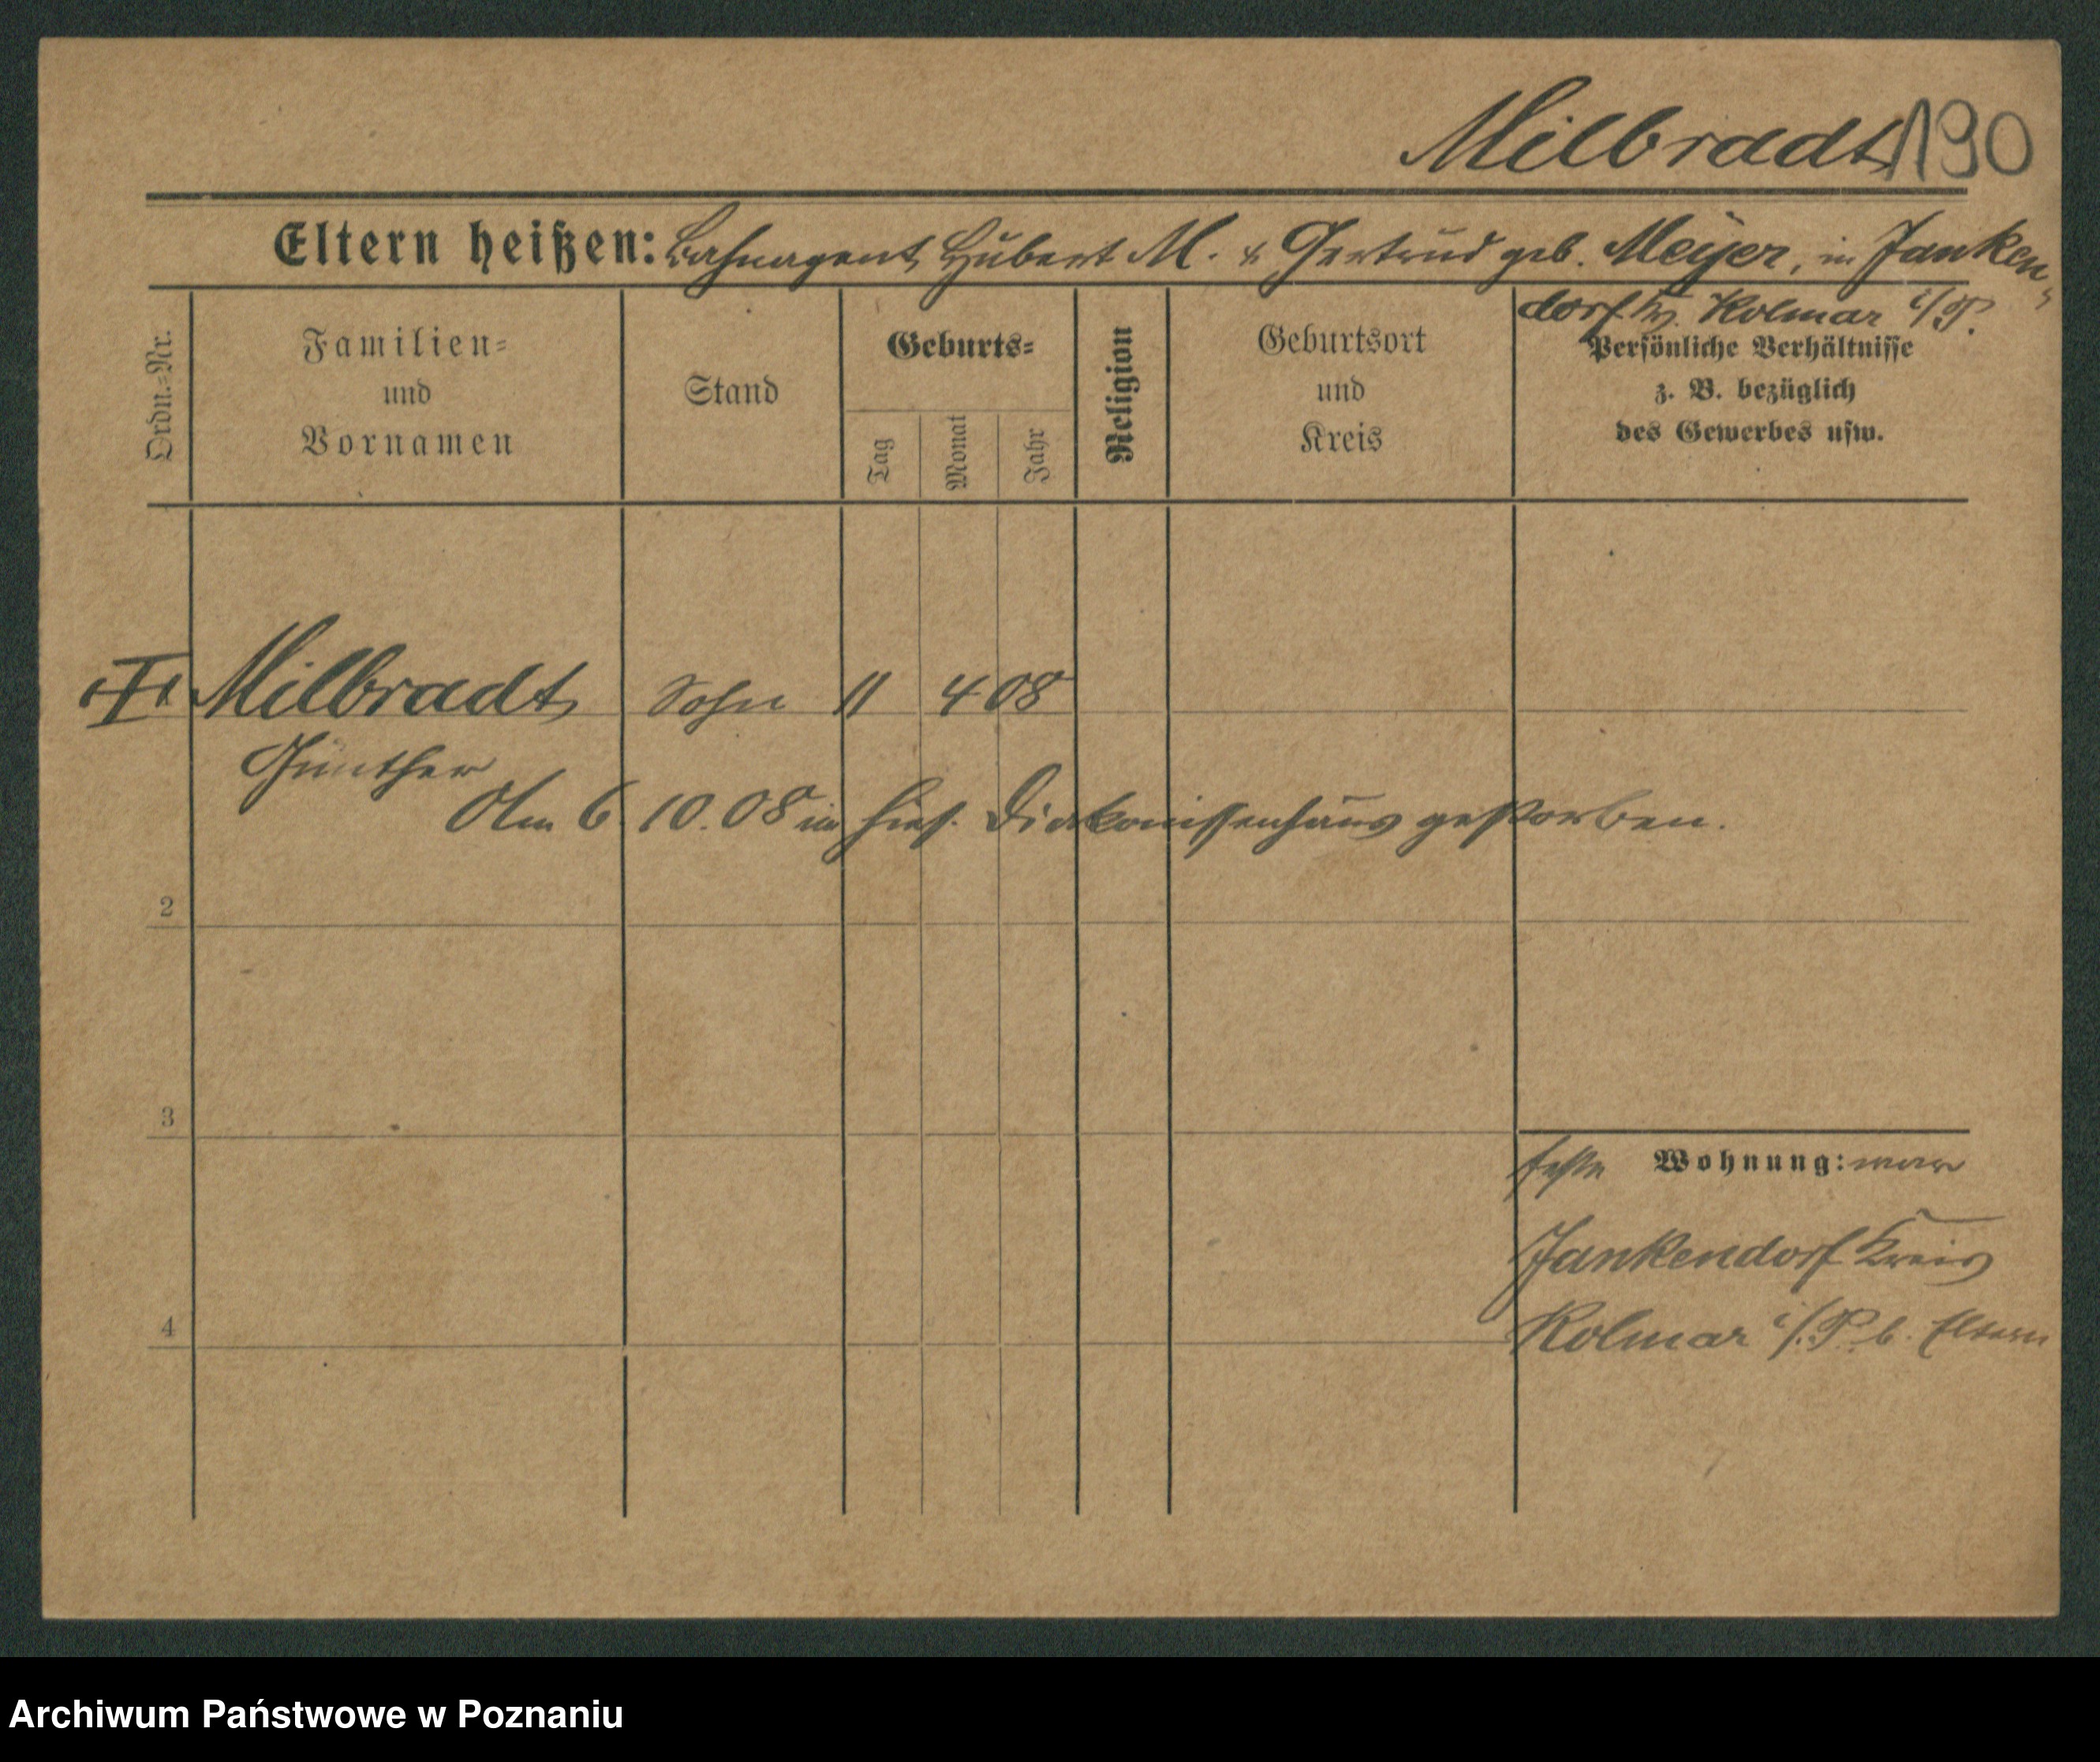 Milbradt 190
Eltern heißen: Bahnagent Hubert M. & Gertrud geb. Meyer, in Janken-
dorf Kr. Kolmar i/P.
Ordn.-Nr.
Familien-
und
Vornamen
Stand
Geburts-
Tag
Monat
Jahr
Religion
Geburtsort
und
Kreis
Persönliche Verhältnisse
z. B. bezüglich
des Gewerbes usw.
Milbradt Sohn 11 4 08
Günther
Am 6. 10. 08 im hies. Diakonissenhaus gestorben.
2
3
feste Wohnung: war
Jankendorf Kreis
4
Kolmar i/P. b. Eltern
Archiwum Państwowe w Poznaniu